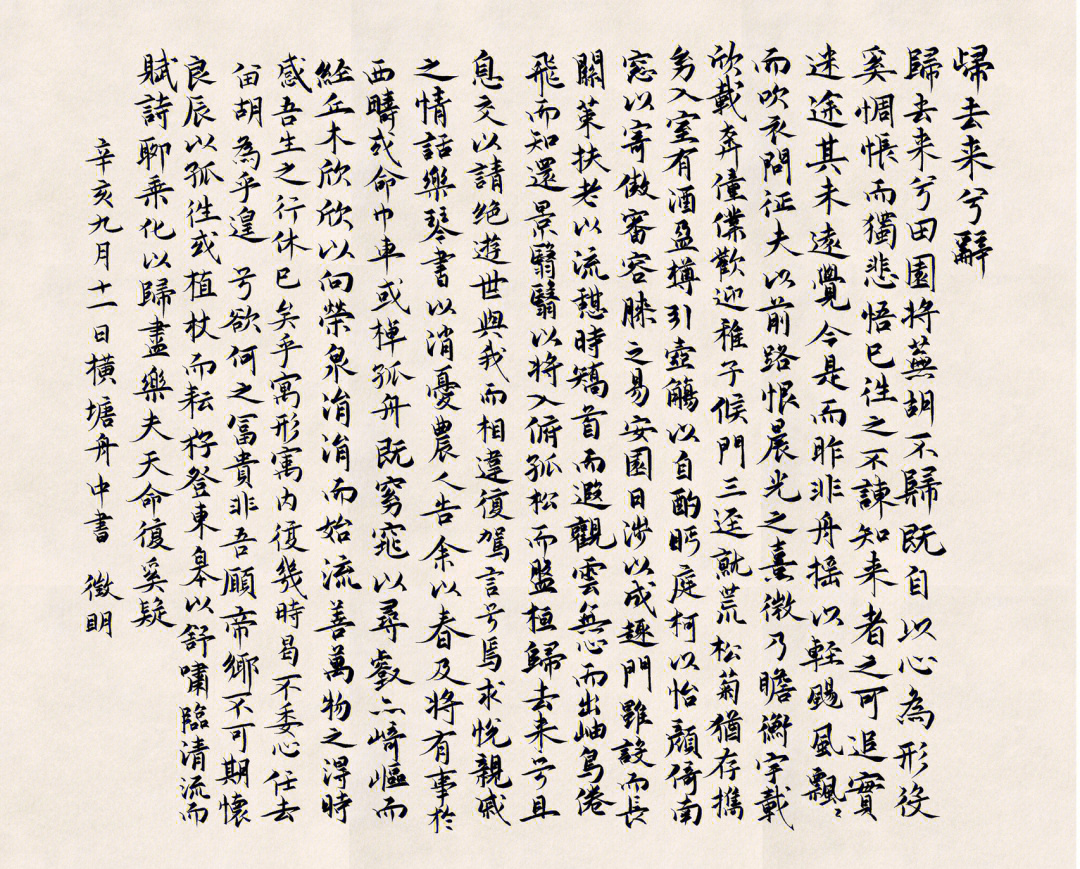 歸去来兮辭
歸去来兮田園将蕪胡不歸既自以心為形役
奚惆悵而獨悲悟已往之不諫知来者之可追實
迷途其未遠覺今是而昨非舟摇以輕颺風飄〻
而吹衣問征夫以前路恨晨光之熹微乃瞻衡宇載
欣載奔僮僕歡迎稚子候門三逕就荒松菊猶存攜
幼入室有酒盈樽引壺觴以自酌眄庭柯以怡顏倚南
窓以寄傲審容膝之易安園日涉以成趣門雖設而長
關策扶老以流憩時矯首而遐觀雲無心而出岫鳥倦
飛而知還景翳翳以将入俯孤松而盤桓歸去来兮且
息交以請絶遊世與我而相違復駕言兮焉求悅親戚
之情話樂琴書以消憂農人告余以春及将有事於
西疇或命巾車或棹孤舟既窈窕以尋壑亦崎嶇而
經丘木欣欣以向榮泉涓涓而始流善萬物之得時
感吾生之行休已矣乎寓形寓内復幾時曷不委心任去
留胡為乎遑兮欲何之冨貴非吾願帝鄉不可期懷
良辰以孤往或植杖而耘耔登東皋以舒嘯臨清流而
賦詩聊乘化以歸盡樂夫天命復奚疑
辛亥九月十一日橫塘舟中書 徵明